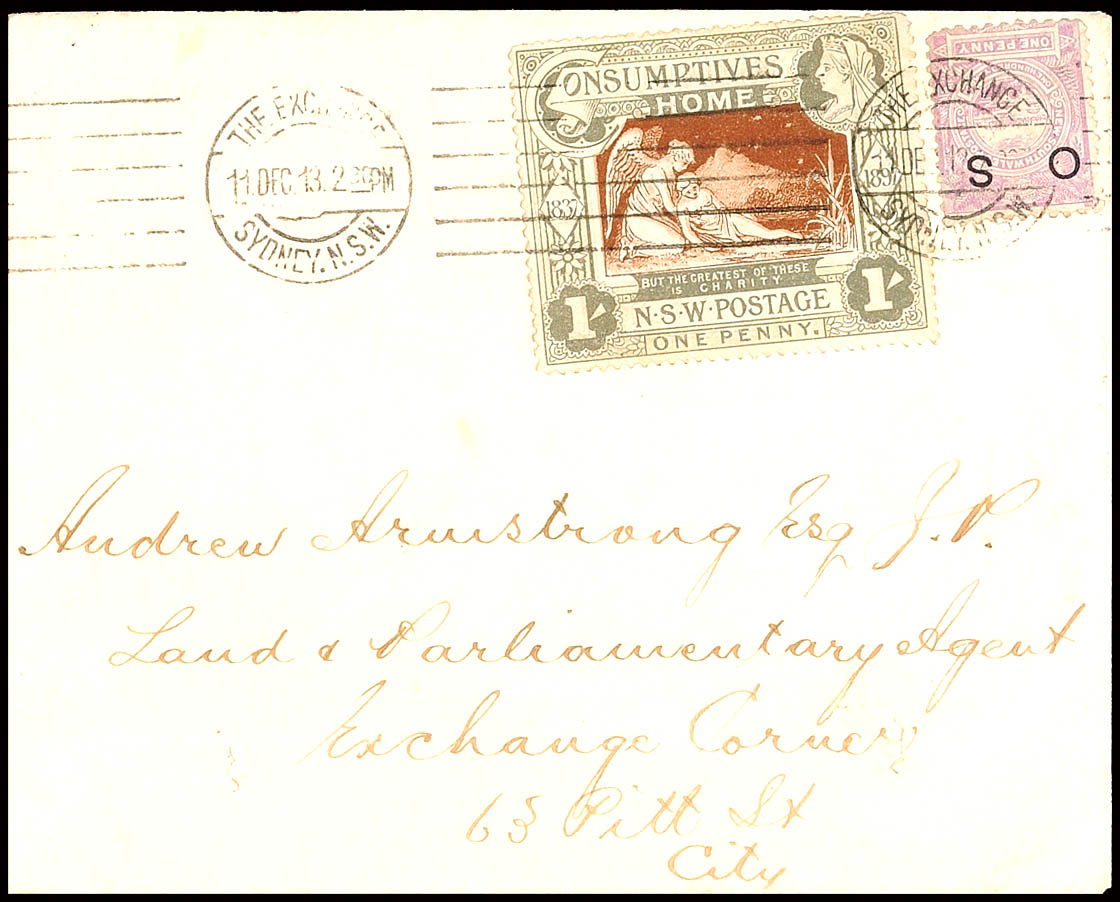 THE EXCHANGE
11 DEC.13.2 30PM
SYDNEY.N.S.W.
CONSUMPTIVES
HOME
1837
1897
BUT THE GREATEST OF THESE
IS CHARITY
1/- 1/-
N·S·W·POSTAGE
ONE PENNY.
ONE PENNY
O S
THE EXCHANGE
11 DE
SYDNEY.N.S.W.
Andrew Armstrong Esq J.P.
Land & Parliamentary Agent
Exchange Corner
63 Pitt St
City